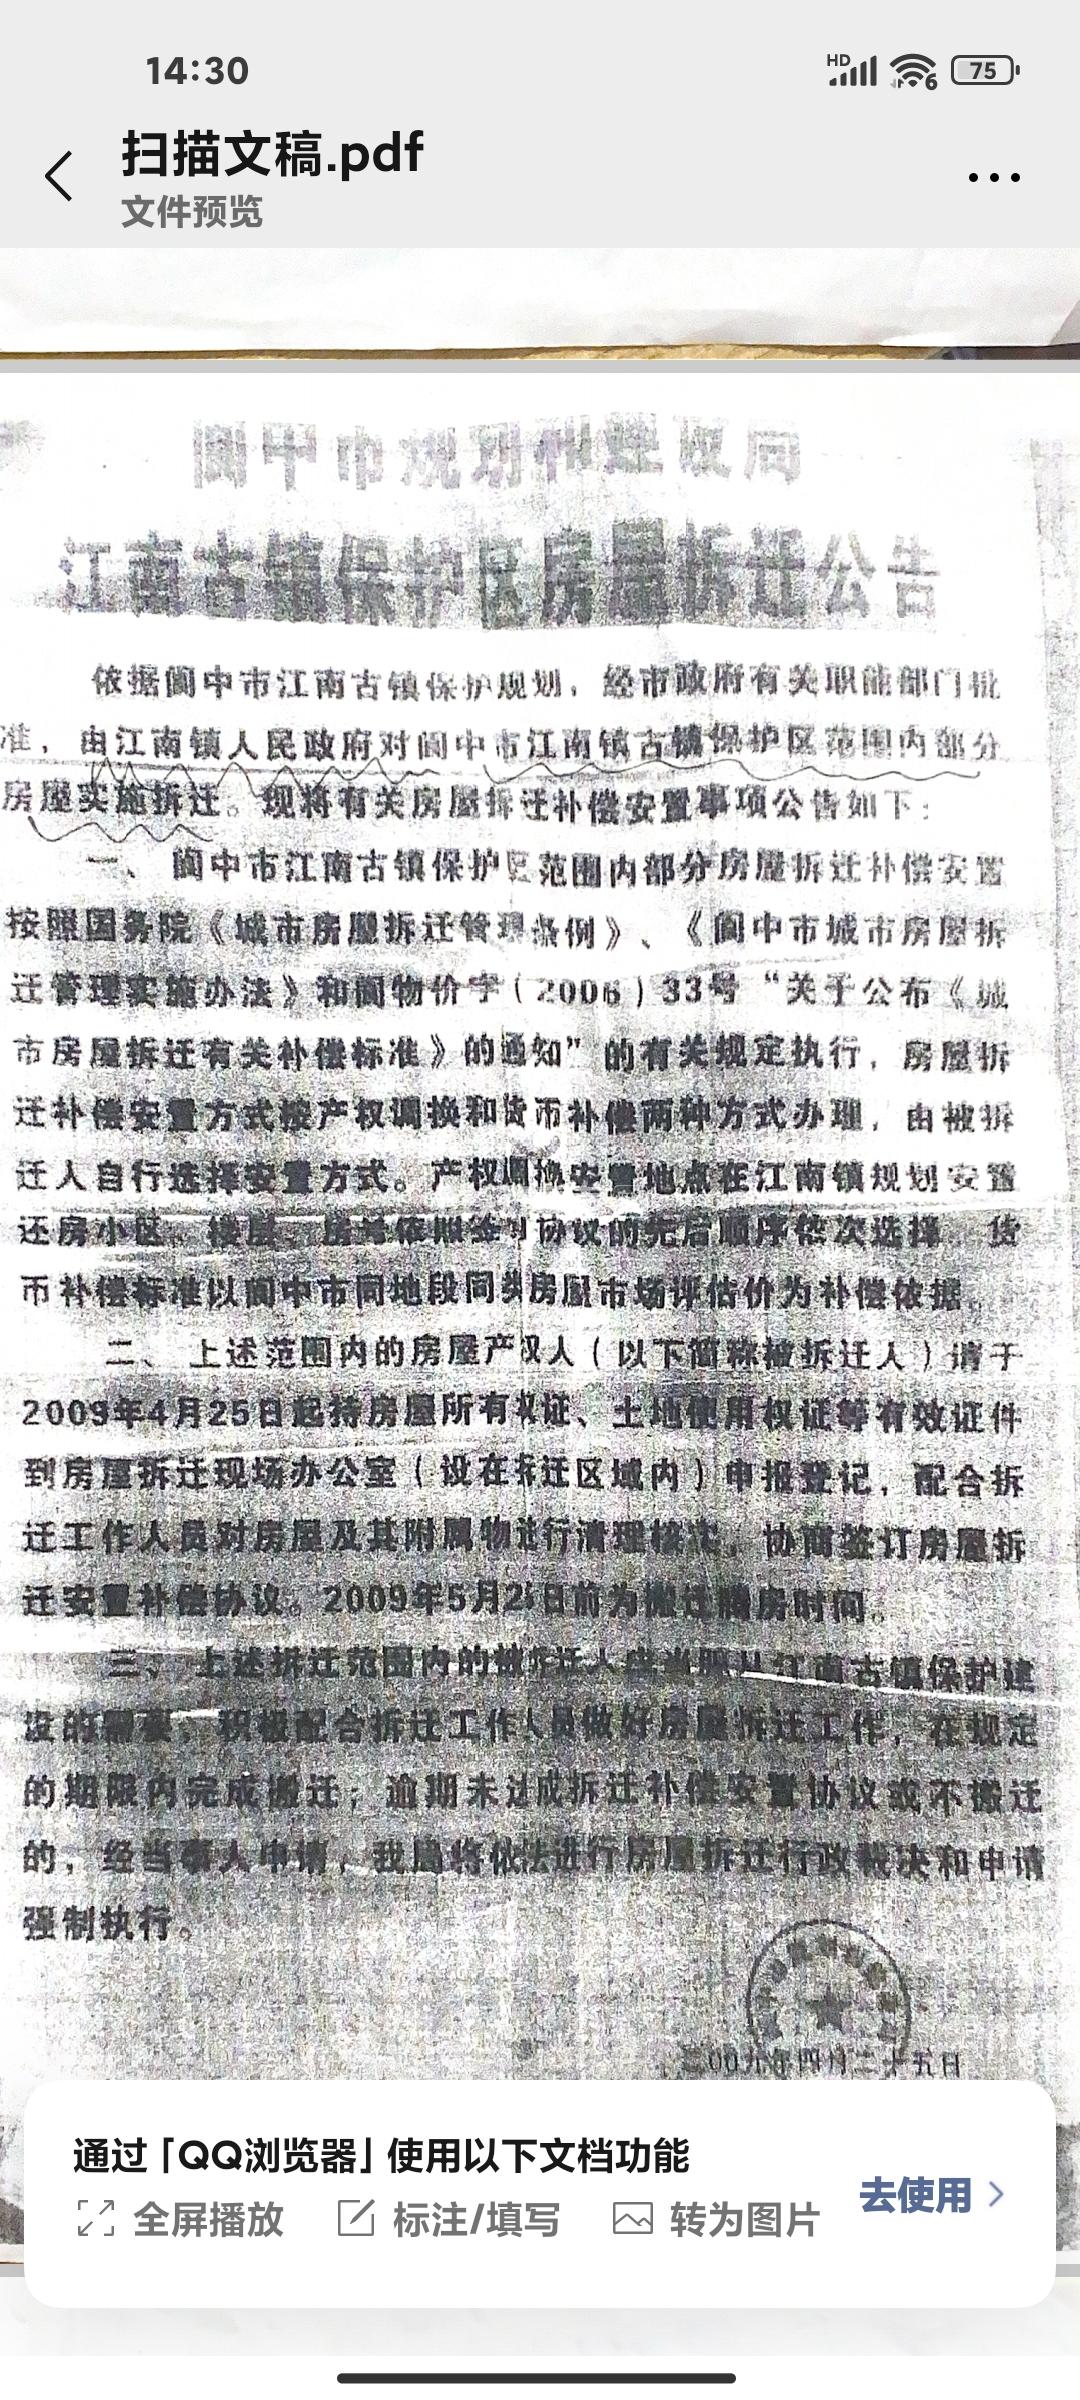 14:30
HD
6
75
扫描文稿.pdf
文件预览
阆中市规划和建设局
江南古镇保护区房屋拆迁公告
依据阆中市江南古镇保护规划，经市政府有关职能部门批
准，由江南镇人民政府对阆中市江南镇古镇保护区范围内部分
房屋实施拆迁。现将有关房屋拆迁补偿安置事项公告如下：
一、阆中市江南古镇保护区范围内部分房屋拆迁补偿安置
按照国务院《城市房屋拆迁管理条例》、《阆中市城市房屋拆
迁管理实施办法》和阆物价字（2006）33号“关于公布《城
市房屋拆迁有关补偿标准》的通知”的有关规定执行，房屋拆
迁补偿安置方式按产权调换和货币补偿两种方式办理，由被拆
迁人自行选择安置方式。产权调换安置地点在江南镇规划安置
还房小区，楼层、房号依照签订协议的先后顺序依次选择，货
币补偿标准以阆中市同地段同类房屋市场评估价为补偿依据。
二、上述范围内的房屋产权人（以下简称被拆迁人）请于
2009年4月25日起持房屋所有权证、土地使用权证等有效证件
到房屋拆迁现场办公室（设在拆迁区域内）申报登记，配合拆
迁工作人员对房屋及其附属物进行清理核实。协商签订房屋拆
迁安置补偿协议。2009年5月2日前为搬迁腾房时间。
三、上述拆迁范围内的被拆迁人应当服从江南古镇保护建
设的需要，积极配合拆迁工作人员做好房屋拆迁工作，在规定
的期限内完成搬迁；逾期未达成拆迁补偿安置协议或不搬迁
的，经当事人申请，我局将依法进行房屋拆迁行政裁决和申请
强制执行。
二00九年四月二十五日
通过「QQ浏览器」使用以下文档功能
全屏播放
标注/填写
转为图片
去使用